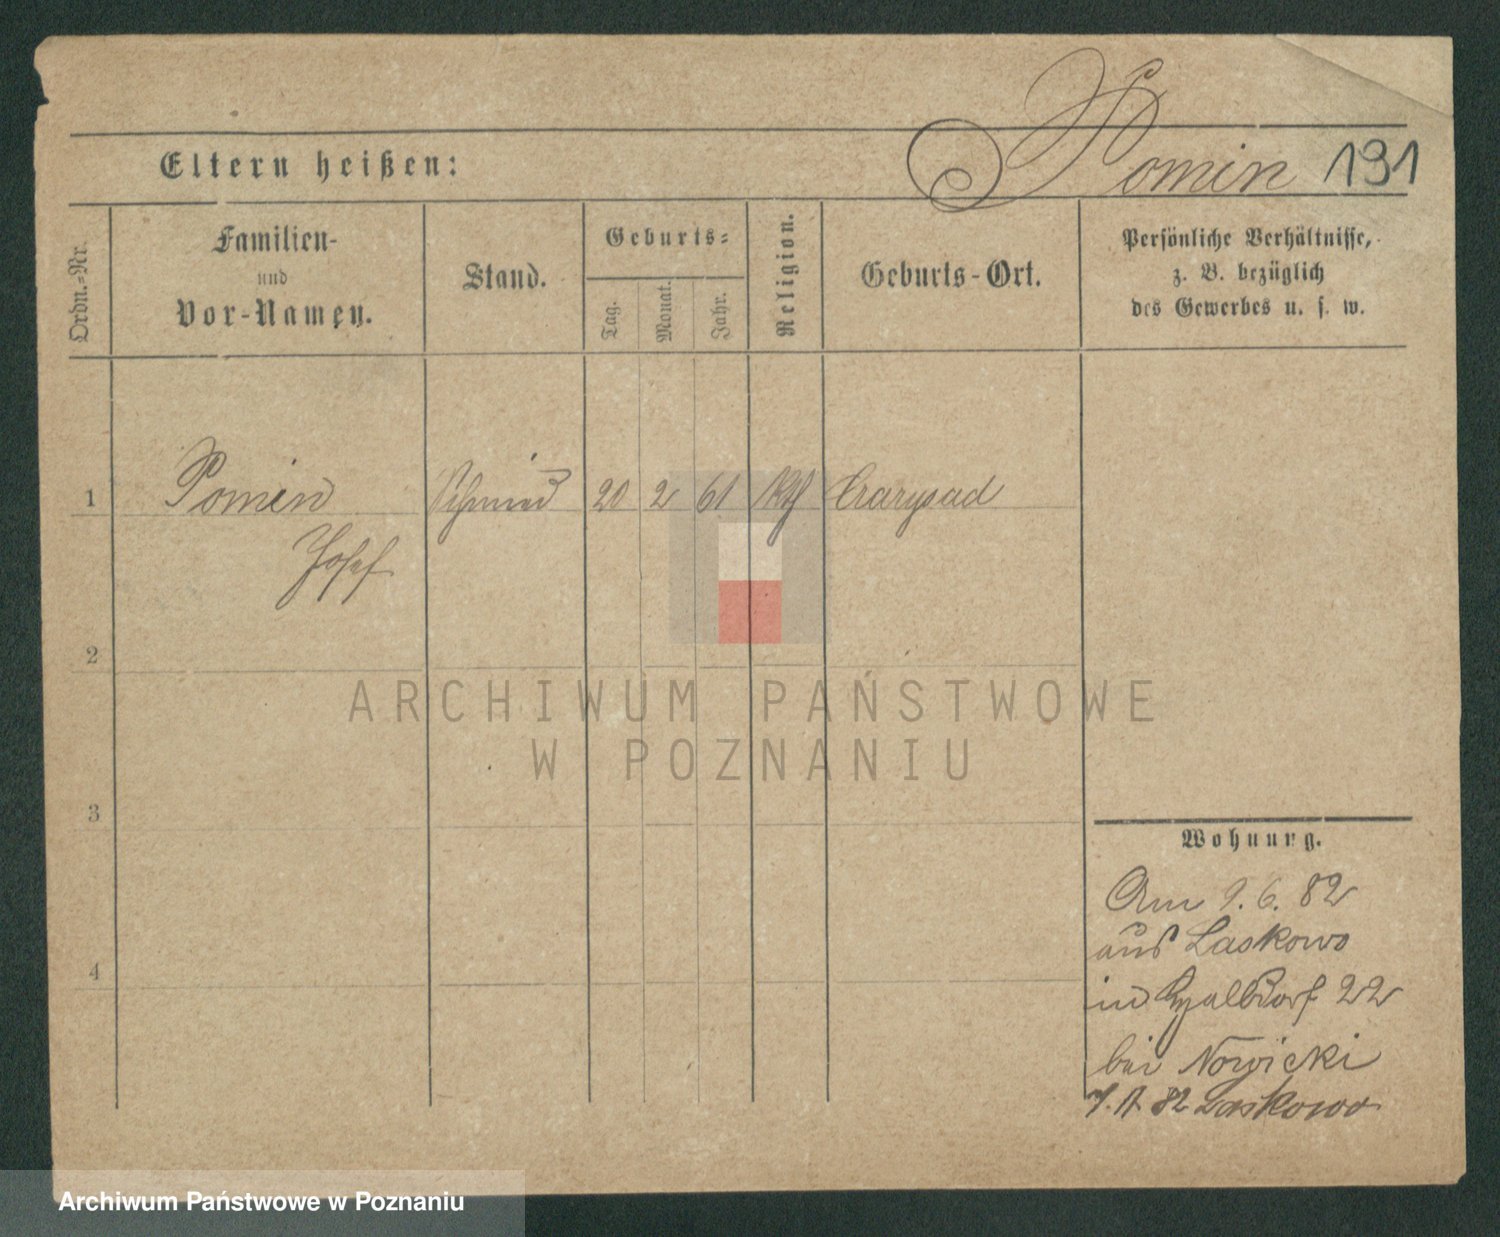 Pomin 191
Eltern heißen:
Ordn.-Nr.
Familien-
und
Vor-Namen.
Stand.
Geburts-
Tag.
Monat.
Jahr.
Religion.
Geburts-Ort.
Persönliche Verhältnisse,
z. B. bezüglich
des Gewerbes u. s. w.
1 Pomin Schmied 20 2 61 kth
Josef
2
ARCHIWUM PAŃSTWOWE
W POZNANIU
3
Wohnung.
Am 9. 6. 82
aus Laskowo
in 22
4
bei Nowicki
82 Laskowo
Archiwum Państwowe w Poznaniu